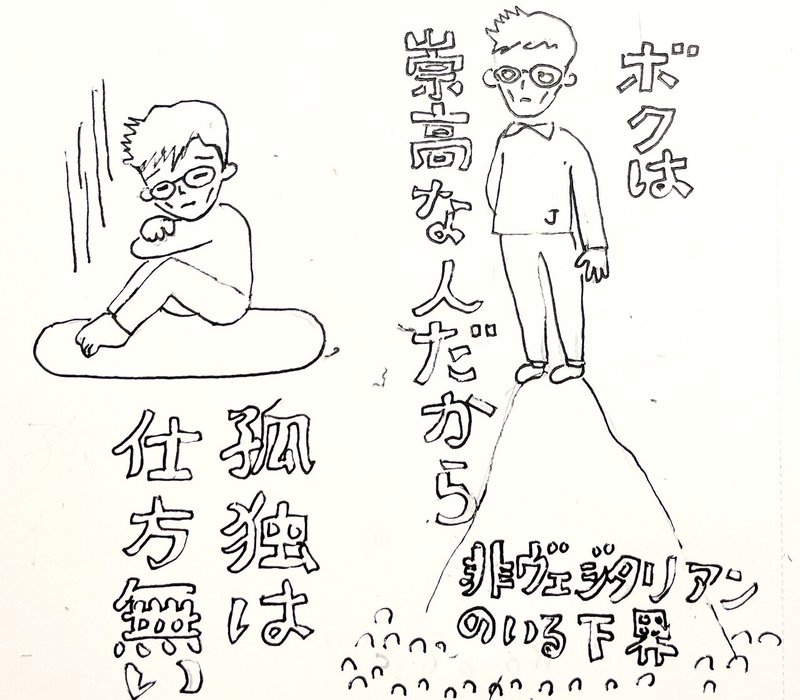 ボクは
崇高な人だから
J
非ヴェジタリアン
のいる下界
孤独は
仕方無い